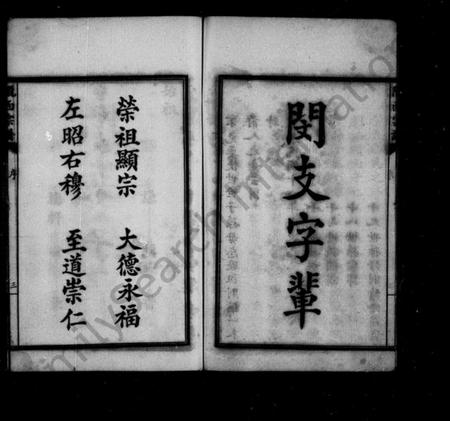 閔支字輩
榮祖顯宗 大德永福
左昭右穆 至道崇仁
序
FamilySearch International